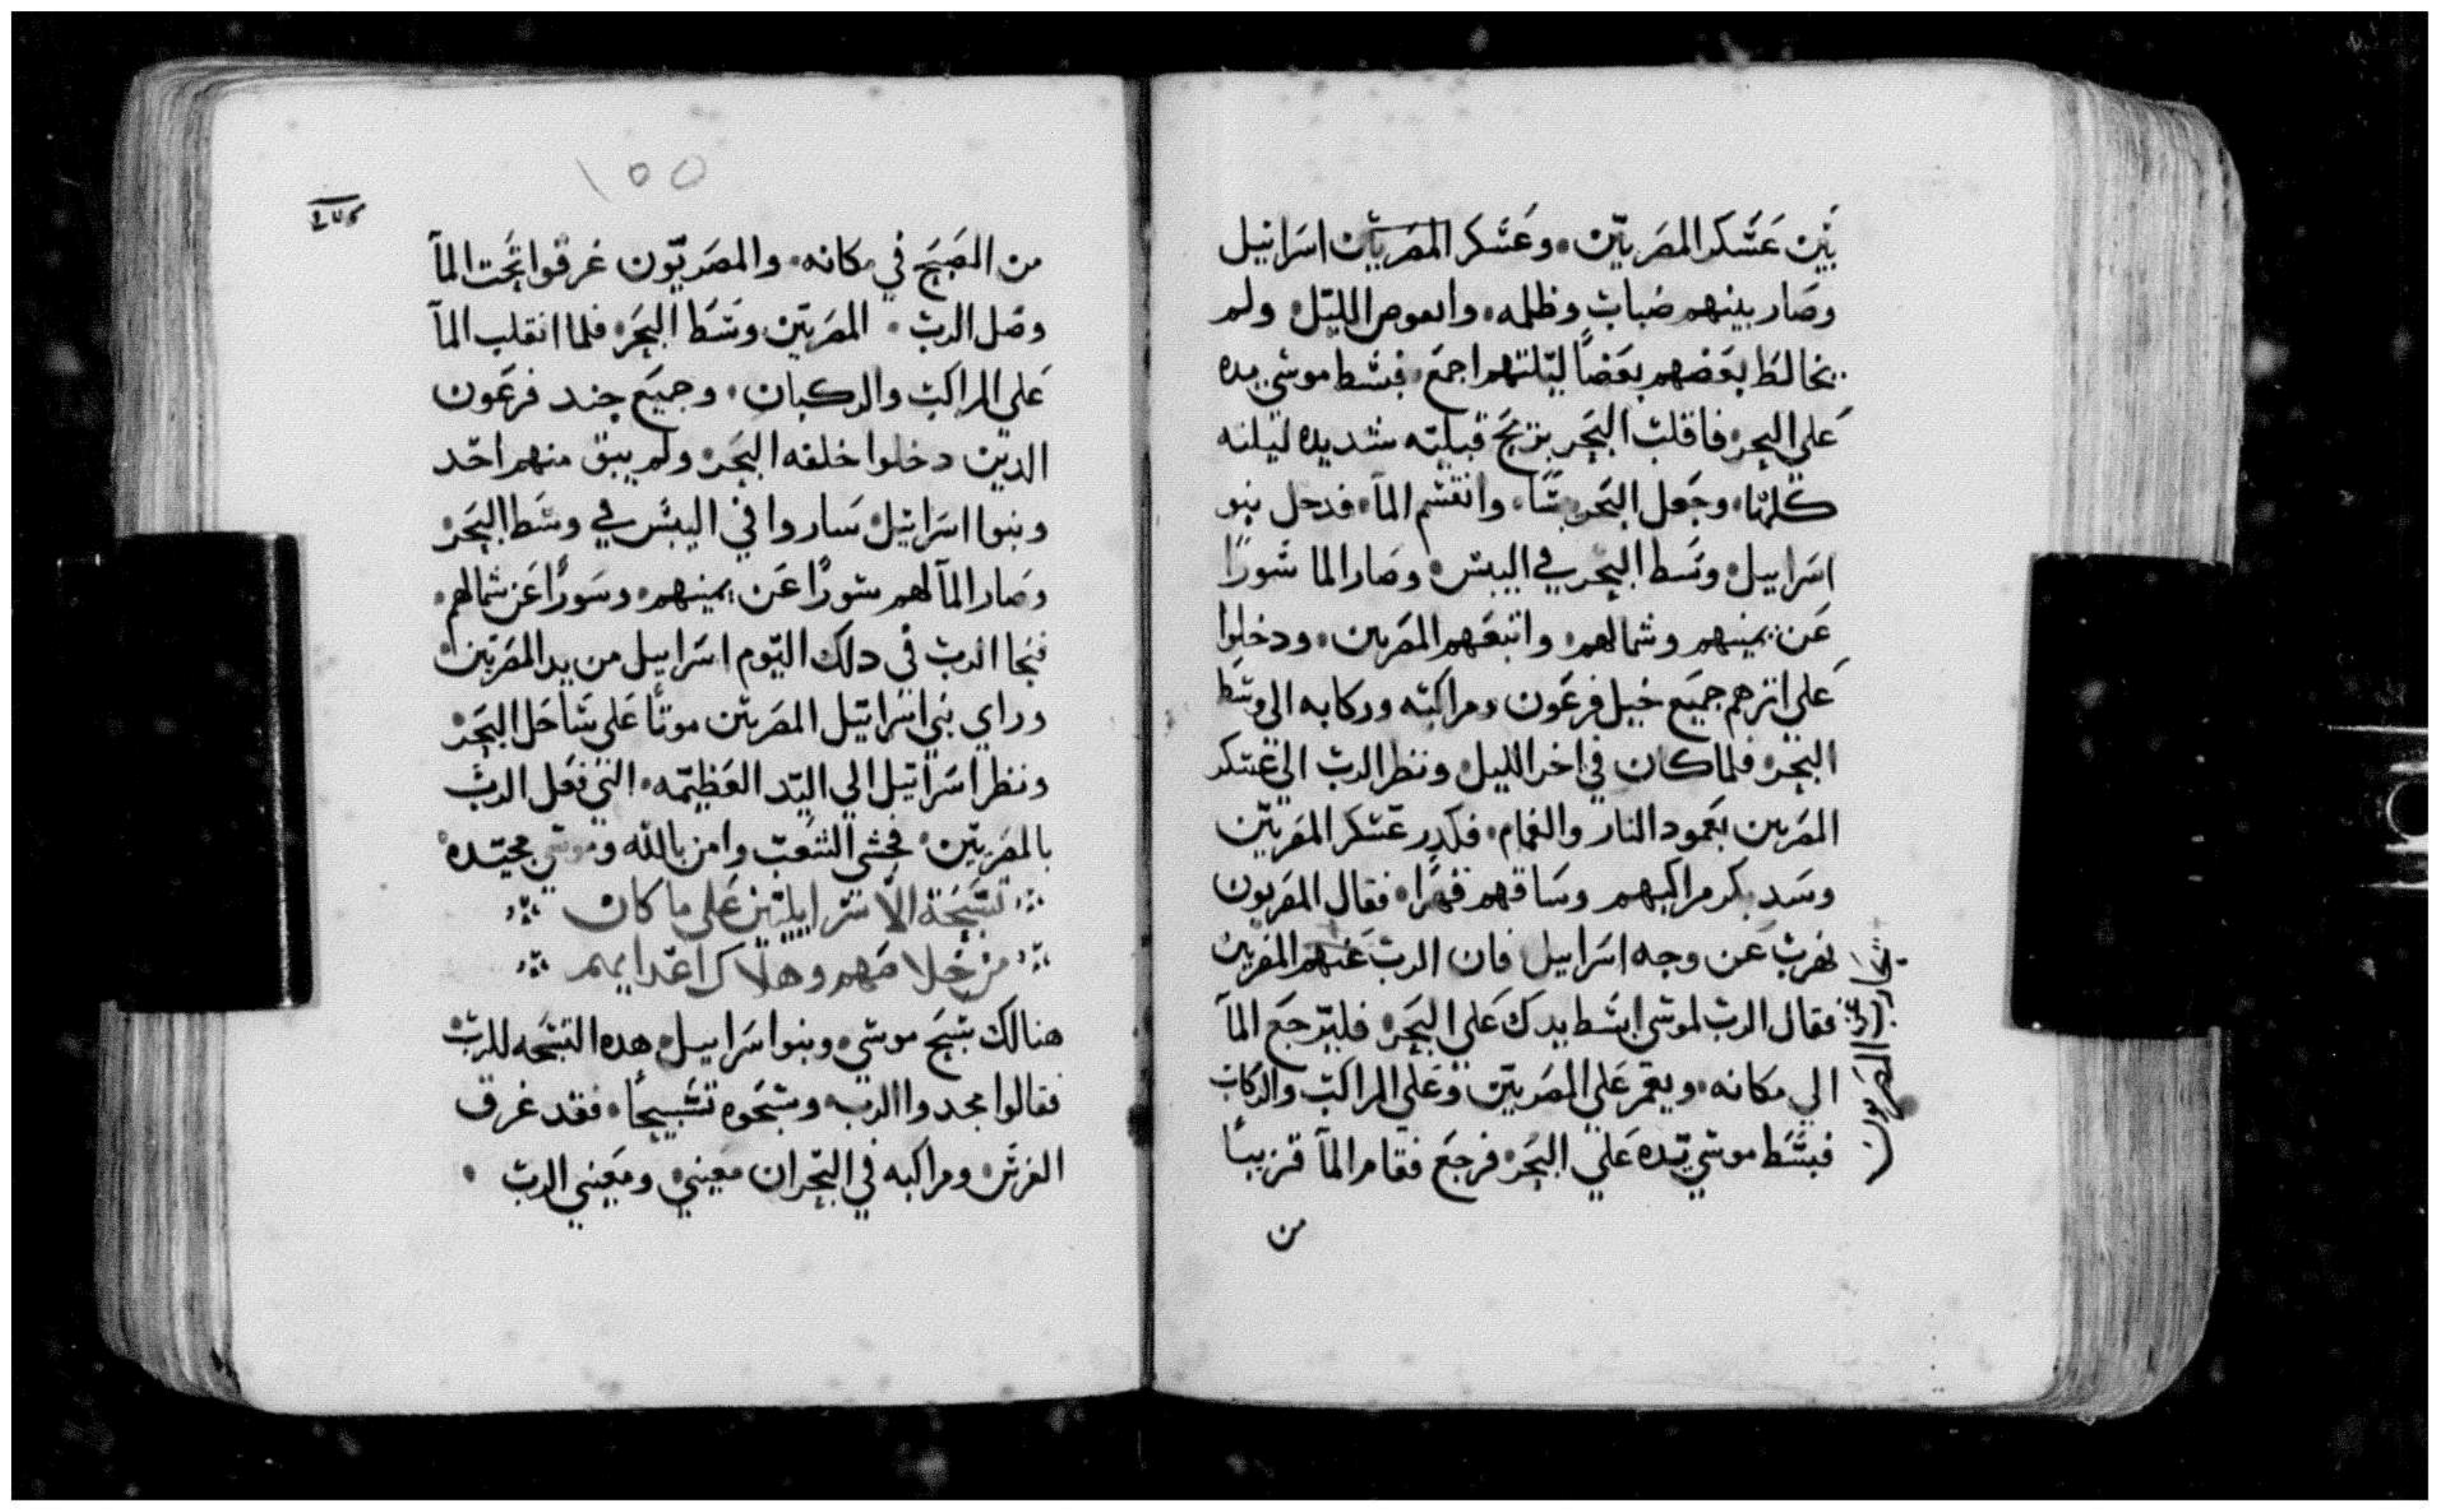 بين عسكر المصريين وعسكر المصريين اسرائيل
وصار بينهم ضباب وظلمه والعوص الليل ولم
يخالط بعضهم بعضاً ليلتهم اجمع فبسط موسى يده
على البحر فاقلب البحر بريح قبليه شديده ليلته
كلها وجعل البحر يبسًا وانقسم المآ فدخل بنو
اسراييل وسط البحر في اليبس وصار الما سورًا
عن يمينهم وشمالهم واتبعهم المصريين ودخلوا
على اثرهم جميع خيل فرعون ومراكبه وركابه الى وسط
البحر فلما كان في اخر الليل ونظر الرب الي عسكر
المصريين بعمود النار والغمام فكدر عسكر المصريين
وسد بكر مراكبهم وساقهم قهرًا فقال المصريون
نهرب عن وجه اسراييل فان الرب عنهم المصريين
فقال الرب لموسى ابسط يدك على البحر فليرجع المآ
الي مكانه ويغمر على المصريين وعلي المراكب والركاب
فبسط موسي يده علي البحر فرجع فقام المآ قريبًا
من
المصريون
١٥٥
من الصبح في مكانه والمصريون غرقوا تحت المآ
وضل الرب المصريين وسط البحر فلما انقلب المآ
على المراكب والركبان وجميع جند فرعون
الدين دخلوا خلفه البحر ولم يبق منهم احد
وبنوا اسرائيل ساروا في اليبس في وسط البحر
وصار المآ لهم سورًا عن يمينهم وسورًا عن شمالهم
فنجا الرب في دلك اليوم اسراييل من يد المصريين
وراي بني اسرائيل المصريين موتًا على ساحل البحر
ونظر اسرائيل الي اليد العظيمه التي فعل الرب
بالمصريين فخشى الشعب وامن بالله وموسى عبده
تسبحة الاسراييليين على ما كان
من خلاصهم وهلاك اعدايهم
هنالك سبح موسي وبنوا اسراييل هده التسبحه للرب
فقالوا مجدوا الرب وسبحوه تسبيحًا فقد غرق
الفرس ومراكبه في البحر ان معيني ومعيني الرب